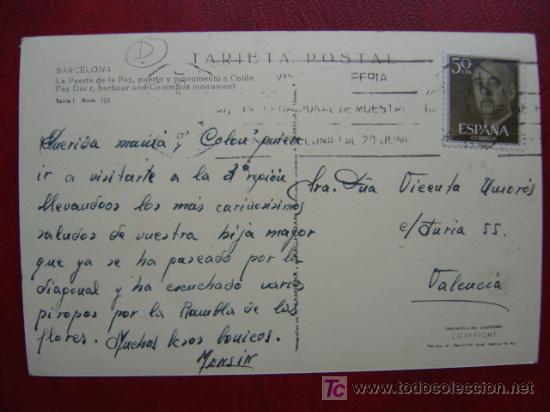 D
TARJETA POSTAL
BARCELONA
La Puerta de la Paz, puerto y monumento a Colón
Paz Door, harbour and Columbus monument
Serie I Núm. 153
FERIA
INTERNACIONAL DE MUESTRAS
BARCELONA 1 AL 20 JUNIO
50 CTS
ESPAÑA
CORREOS
Querida mamá y Colon quieren
ir a visitarte a la 3ª región
llevandoos los más cariñosisimos
saludos de vuestra hija mayor
que ya se ha paseado por la
diagonal y ha escuchado varios
piropos por la Rambla de las
flores. Muchos besos bonicos.
Mensin
Sra. Dña Vicenta Amorós
c/Turia 55.
Valencia
COPYRIGHT
todocoleccion
todocoleccion.net